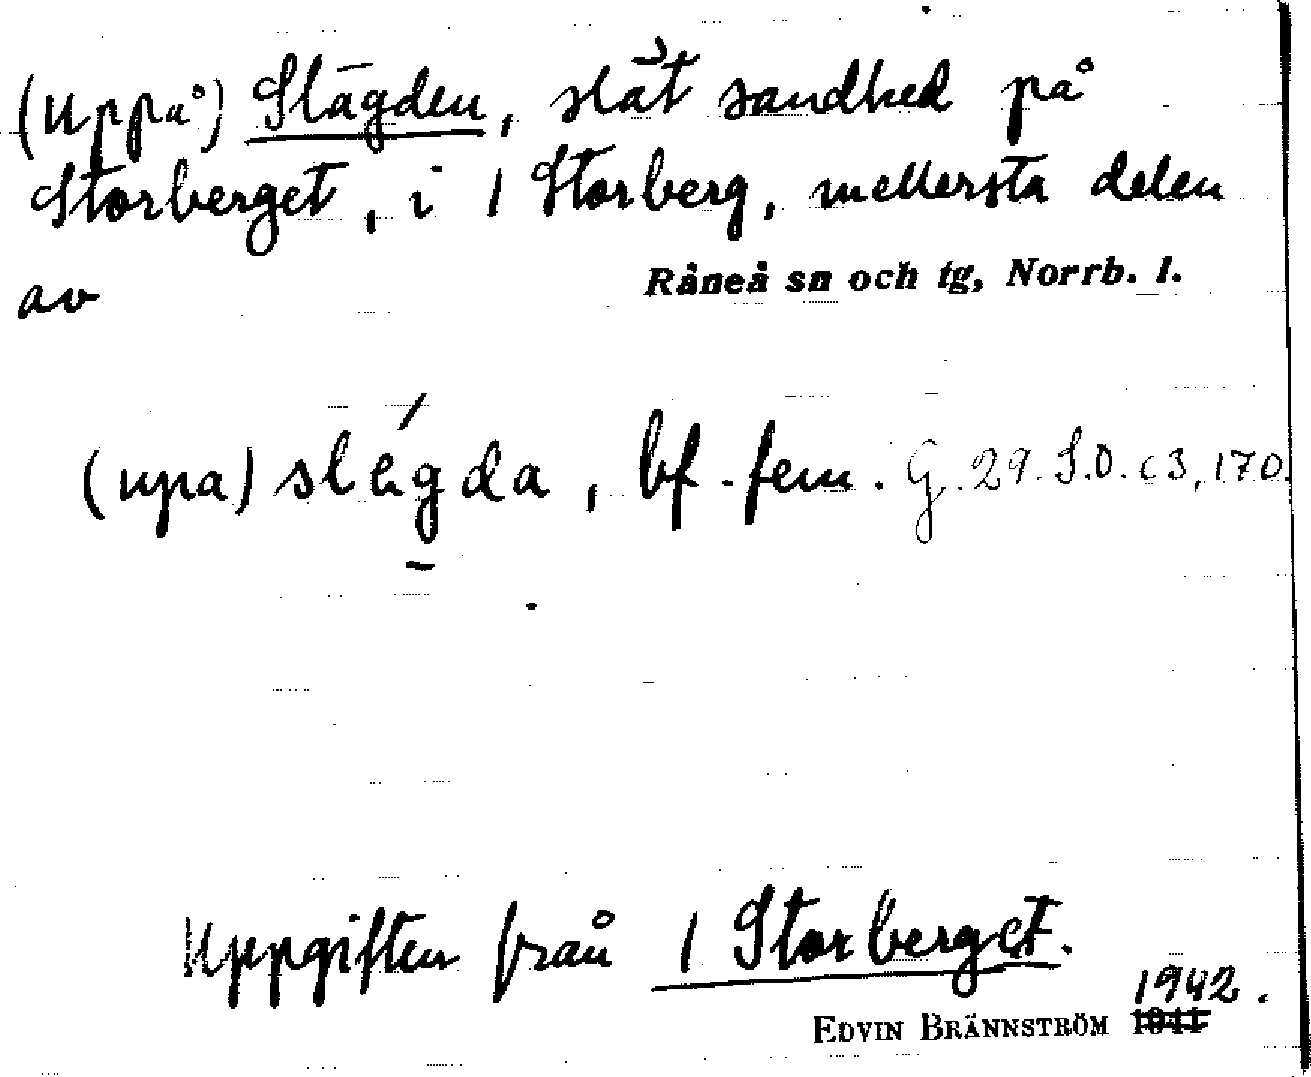 (Uppå) Slägden, slät sandhed på
Storberget, i 1 Storberg, mellersta delen
av Råneå sn och tg, Norrb. l.
(upa) slégda, bf. fem. G. 29. S.D. c3, 170.
Uppgiften från 1 Storberget.
1942.
EDVIN BRÄNNSTRÖM 1941